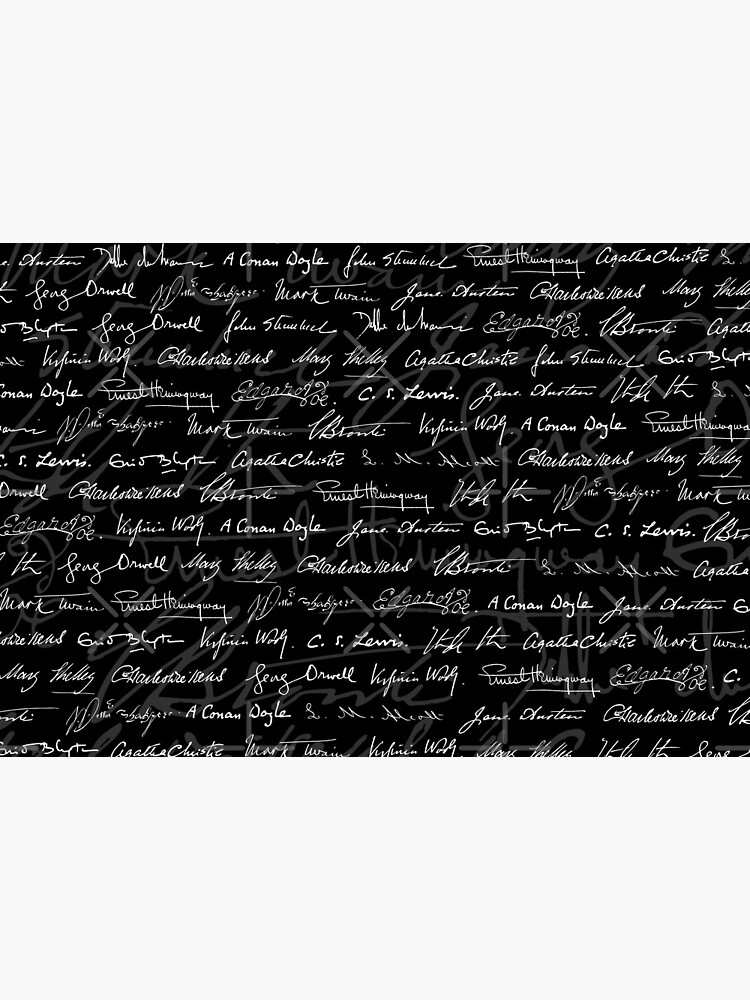 Jane. Austen Daphne du Maurier A Conan Doyle John Steinbeck Ernest Hemingway Agatha Christie L.
George Orwell Mark Twain Jane. Austen Charles Dickens Mary Shelley
Enid Blyton George Orwell John Steinbeck Daphne du Maurier Edgar A Poe. CBrontë Agatha
Virginia Woolf. Charles Dickens Mary Shelley Agatha Christie John Steinbeck Enid Blyton
Conan Doyle Ernest Hemingway Edgar A Poe. C. S. Lewis. Jane. Austen L.
Mark Twain CBrontë Virginia Woolf. A Conan Doyle Ernest Hemingway
C. S. Lewis. Enid Blyton Agatha Christie L. M. Alcott Charles Dickens Mary Shelley
Orwell Charles Dickens CBrontë Ernest Hemingway Mark Twain
Edgar A Poe. Virginia Woolf. A Conan Doyle Jane. Austen Enid Blyton C. S. Lewis. CBrontë
George Orwell Mary Shelley Charles Dickens CBrontë L. M. Alcott Agatha
Mark Twain Ernest Hemingway Edgar A Poe. A Conan Doyle Jane. Austen
Charles Dickens Enid Blyton Virginia Woolf. C. S. Lewis. Agatha Christie Mark Twain
Mary Shelley Charles Dickens George Orwell Virginia Woolf. Ernest Hemingway Edgar A Poe. C.
CBrontë A Conan Doyle L. M. Alcott Jane. Austen Charles Dickens
Enid Blyton Agatha Christie Mark Twain Virginia Woolf. Mary Shelley George